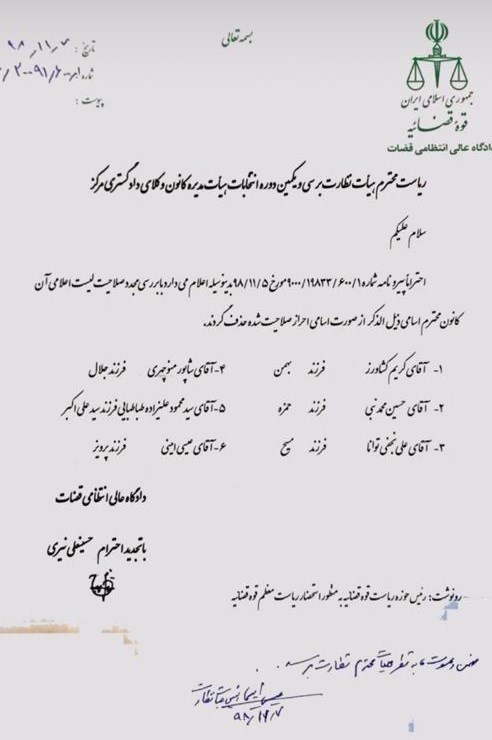 بسمه تعالی
تاریخ: ۹۸٫۱۱٫۷
شماره:
پیوست:
جمهوری اسلامی ایران
قوه قضائیه
دادگاه عالی انتظامی قضات
ریاست محترم هیأت نظارت بر سی و یکمین دوره انتخابات هیأت مدیره کانون وکلای دادگستری مرکز
سلام علیکم
احتراماً پیرو نامه شماره ۹۰۰۰/۱۹۸۳۳/۶۰۰/۱ مورخ ۹۸/۱۱/۵ بدینوسیله اعلام می دارد با بررسی مجدد صلاحیت لیست اعلامی آن
کانون محترم اسامی ذیل الذکر از صورت اسامی احراز صلاحیت شده حذف گردند.
۱- آقای کریم کشاورز فرزند بهمن ۴- آقای شاپور منوچهری فرزند جلال
۲- آقای حسین محمدنبی فرزند حمزه ۵- آقای سید محمود علیزاده طباطبایی فرزند سید علی اکبر
۳- آقای علی نجفی توانا فرزند مسیح ۶- آقای عیسی امینی فرزند پرویز
دادگاه عالی انتظامی قضات
با تجدید احترام حسینعلی نیری
رونوشت: رئیس حوزه ریاست قوه قضائیه به منظور استحضار ریاست معظم قوه قضائیه
به نظر هیأت محترم نظارت برسد